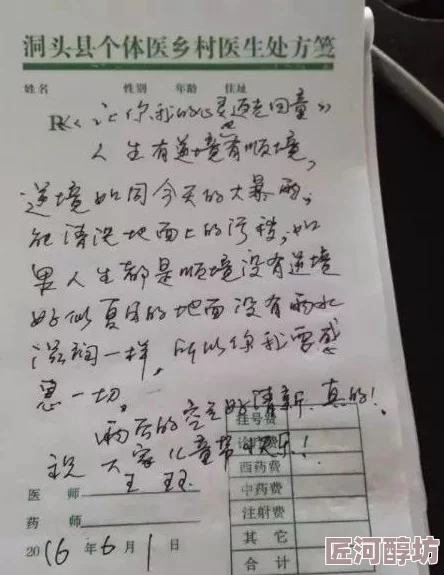 洞头县个体医乡村医生处方笺
姓名 性别 年龄 住址
R 《让你我的心灵返老回童》
人生有逆境也有顺境,
逆境如同今天的大暴雨,
能清洗地面上的污秽,如
果人生都是顺境没有逆境
好似夏日的地面没有雨水
滋润一样,所以你我要感
恩一切。
雨后的空气好清新,真的!
祝大家儿童节快乐!
挂号费
西药费
医师 王
中药费
药师
注射费
其它
2016年6月1日
合计
匠河醇坊